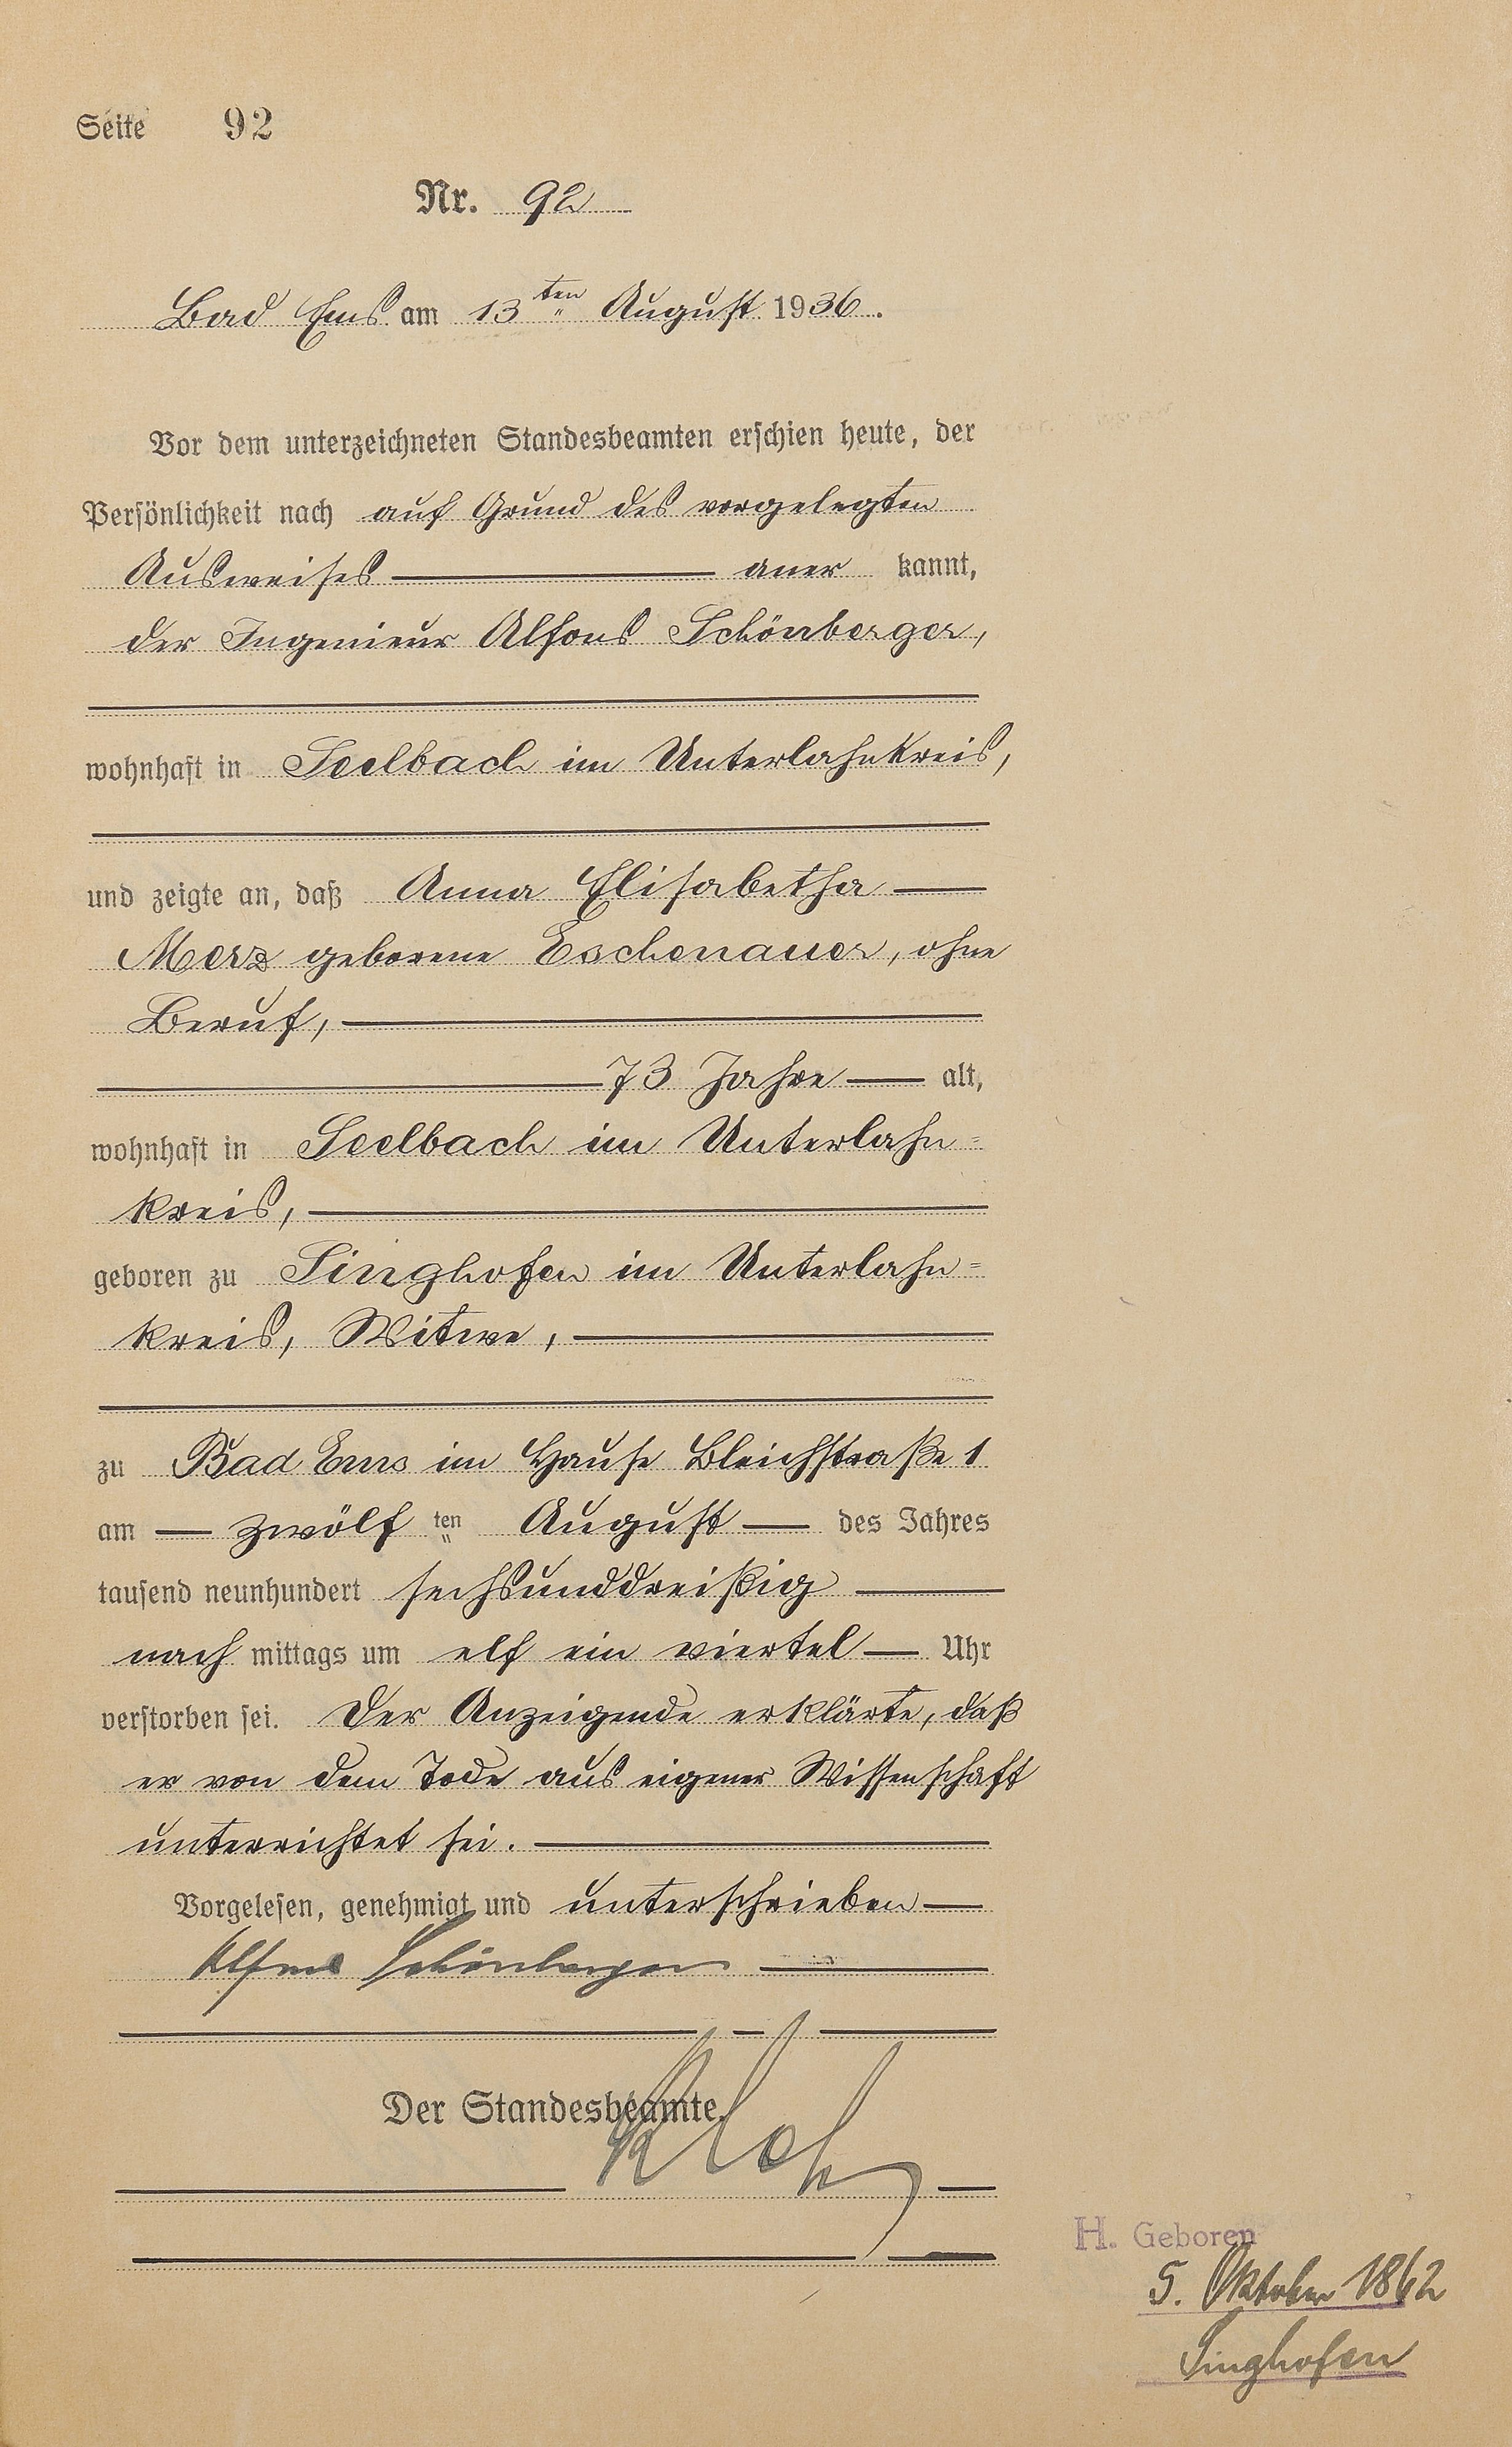 Seite 92
Nr. 92
Bad Ems am 13ten August 1936.
Vor dem unterzeichneten Standesbeamten erschien heute, der
Persönlichkeit nach auf Grund des vorgelegten
Ausweises aner kannt,
der Ingenieur Alfons Schönberger,
wohnhaft in Seelbach im Unterlahnkreis,
und zeigte an, daß Anna Elisabetha
Merz geborene Eschenauer, ohne
Beruf,
73 Jahre alt,
wohnhaft in Seelbach im Unterlahn=
kreis,
geboren zu Singhofen im Unterlahn=
kreis, Witwe,
zu Bad Ems im Hause Bleichstraße 1
am zwölf ten August des Jahres
tausend neunhundert sechsunddreißig
nach mittags um elf ein viertel Uhr
verstorben sei. Der Anzeigende erklärte, daß
er von dem Tode aus eigener Wissenschaft
unterrichtet sei.
Vorgelesen, genehmigt und unterschrieben
Alfons Schönberger
Der Standesbeamte.
H. Geboren
5. Oktober 1862
Singhofen